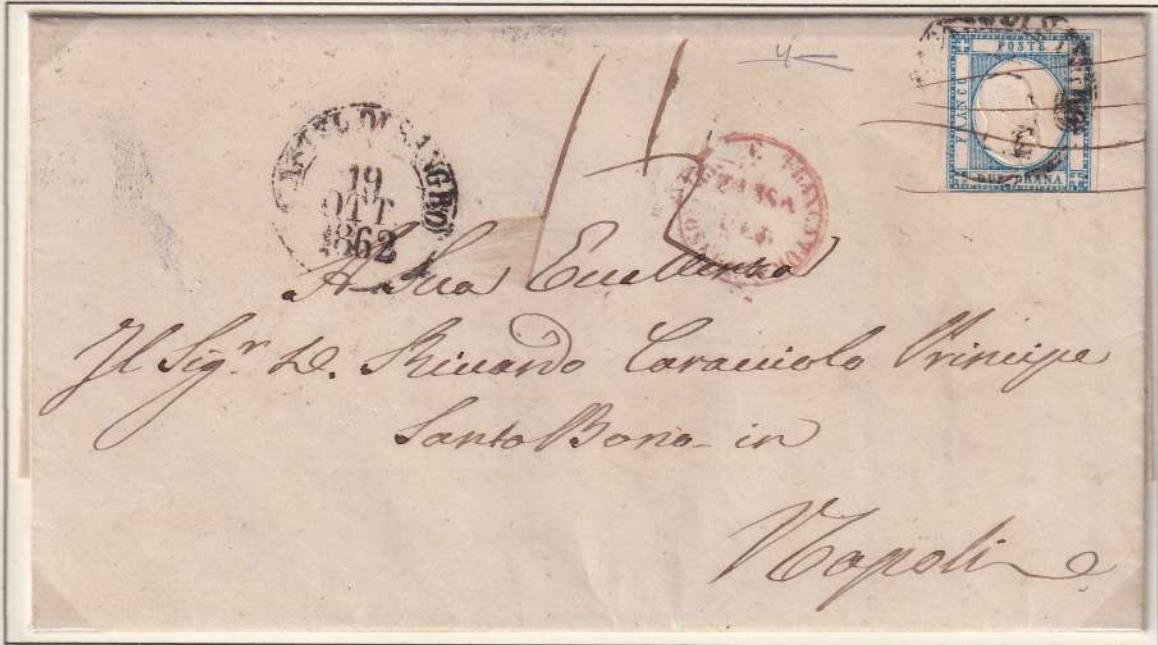 4
POSTE
FRANCO
DUE GRANA
CASTEL DI SANGRO
19
OTT.
1862
A Sua Eccellenza
Il Sigr. D. Riccardo Caracciolo Principe
Santo Bono in
Napoli